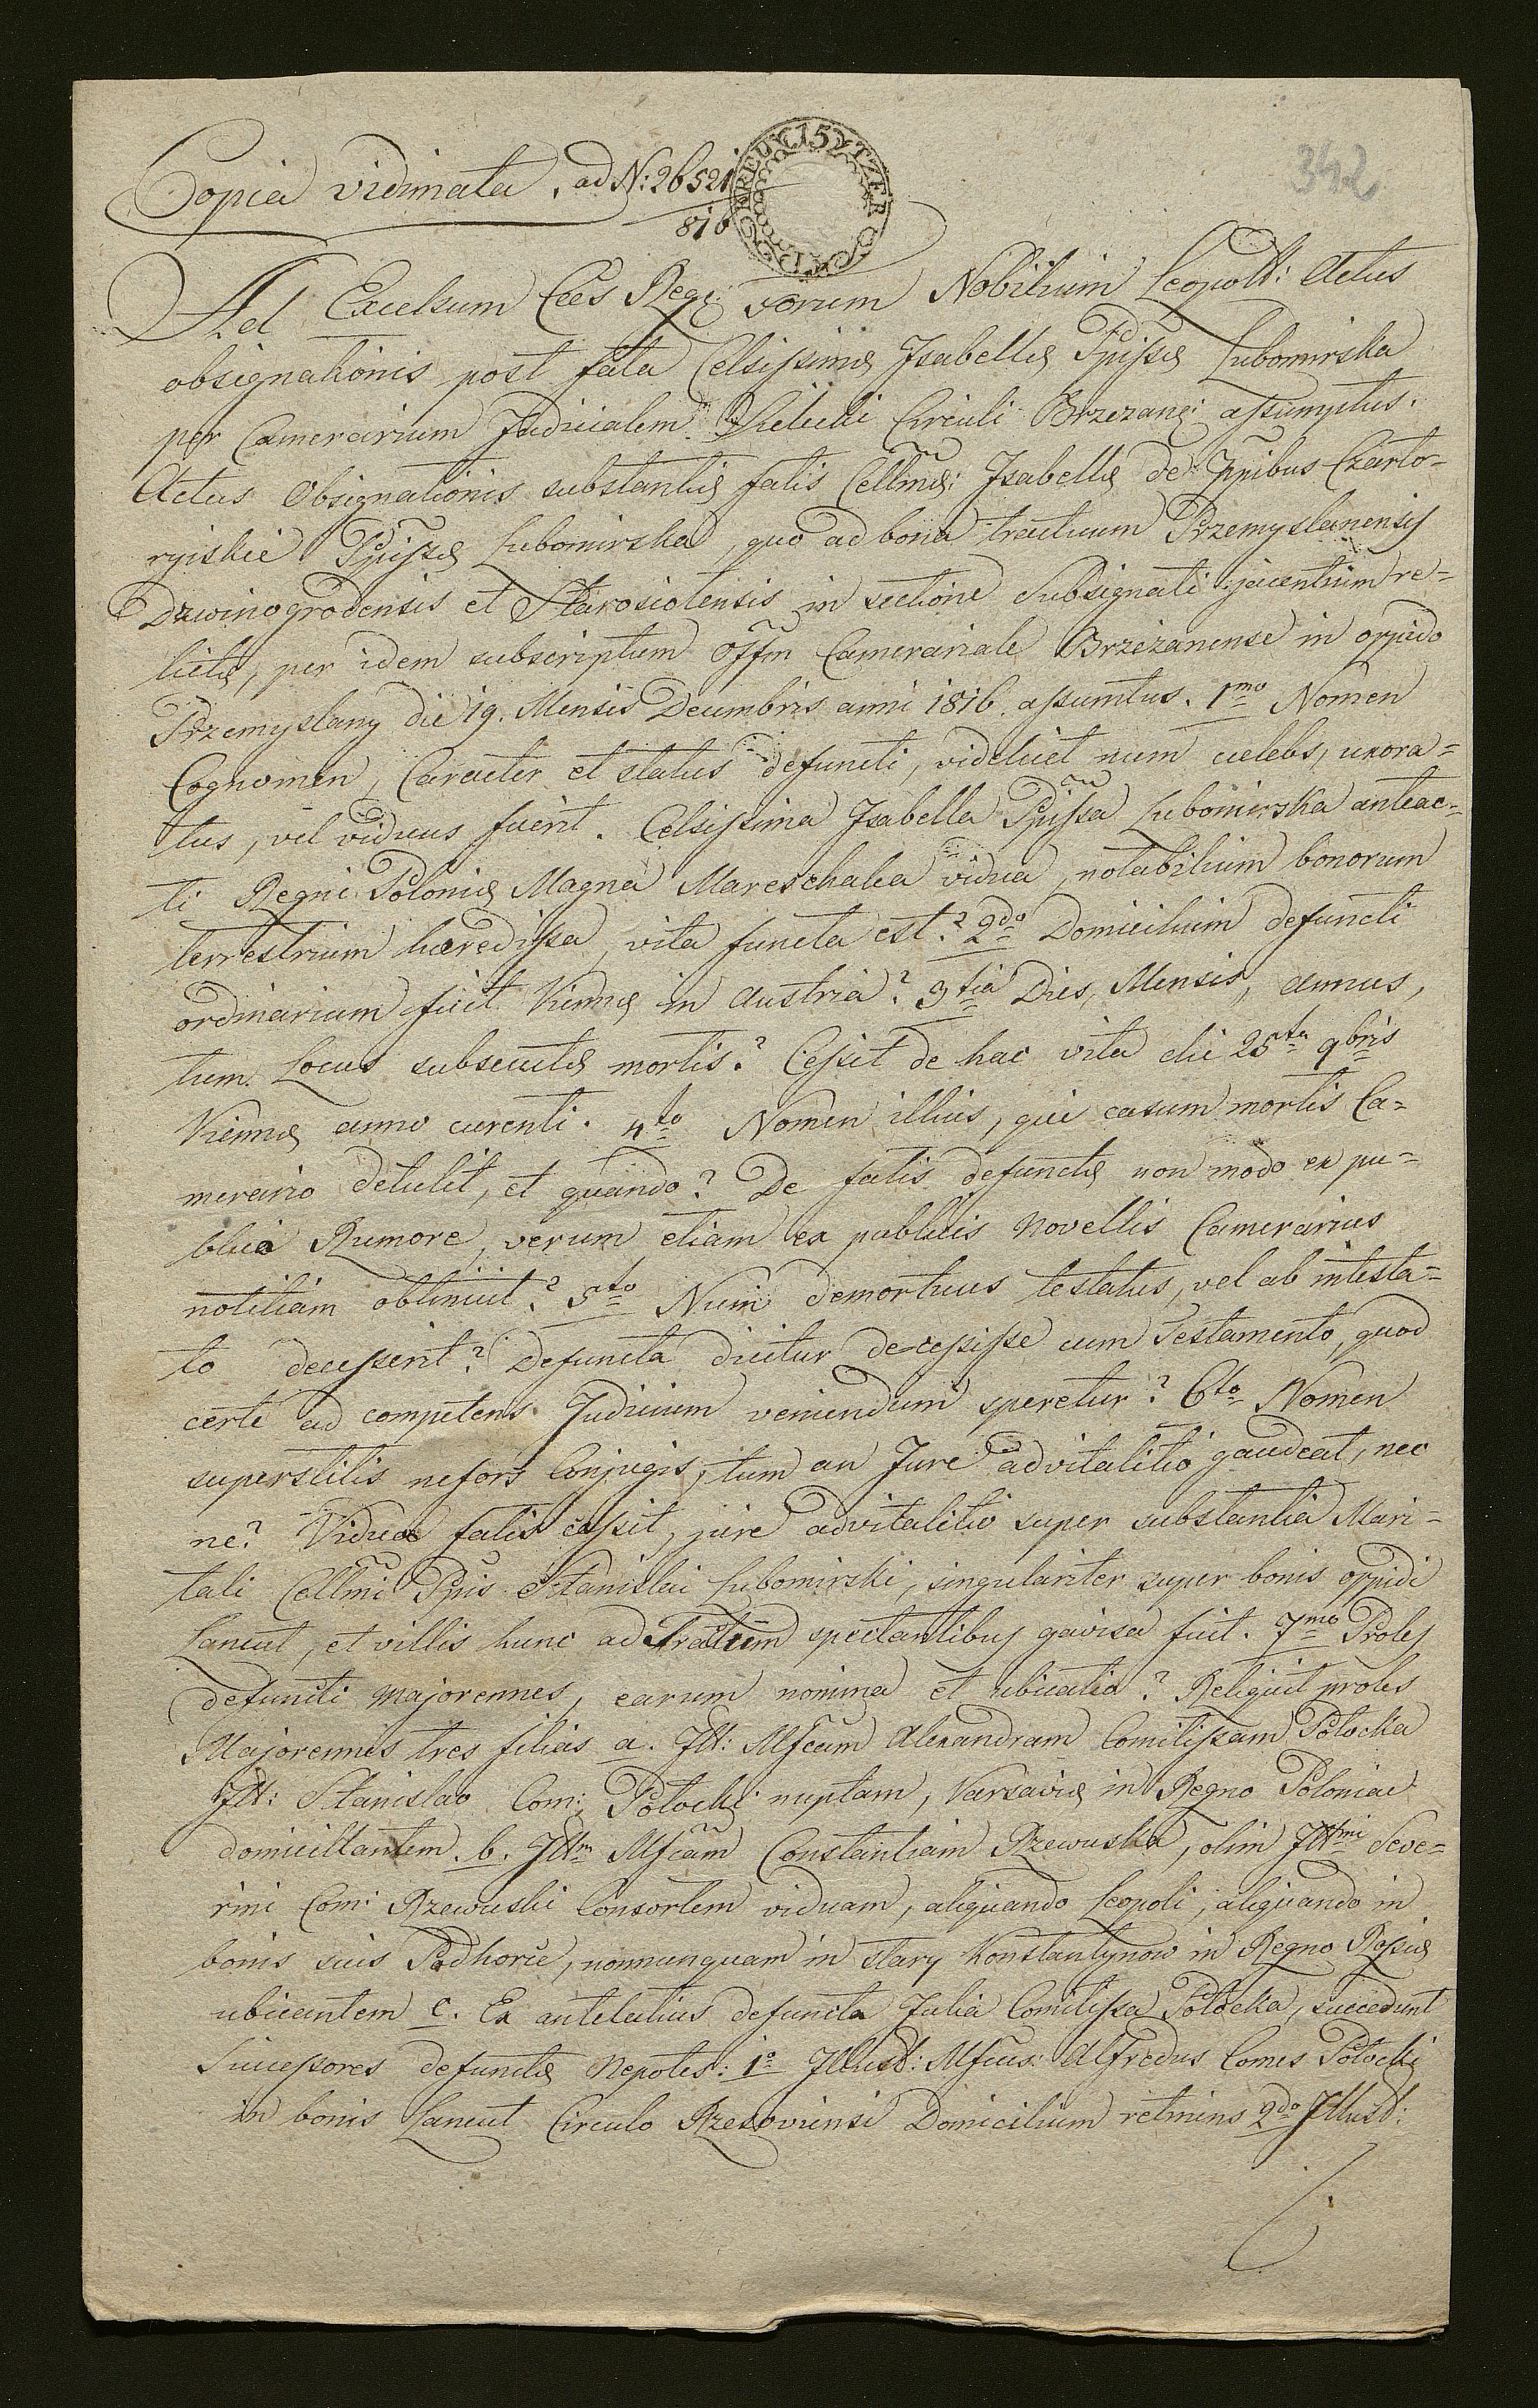 Copia vidimata, ad N: 26521
816
15 XR
342
Ad Excelsum Caes Rege: Forum Nobilium Leopold: Actus
obsignationis post fata Celsissimæ Isabellæ Ppissæ Lubomirska
per Camerarium Judicialem Circuli Brzezan: assumptus.
Actus Obsignationis substantiæ fatis Cellmæ: Isabellæ de Ppibus Czarto=
ryiskie Ppissæ Lubomirska, quo ad bona tractuum Przemyslanensis
Dzwinogrodensis et Starosiolensis in sectione Subsignati jacentium re=
lictæ, per idem subscriptum Offm Camerariale Brzezanense in oppido
Przemyslany die 19. Mensis Decembris anni 1816. assumtus. 1mo Nomen
Cognomen, Caracter et status defuncti, videlicet num cælebs, uxora=
tus, vel viduus fuerit. Celsissima Isabella Ppissa Lubomirska anteac=
ti Regni Poloniæ Magna Mareschalca vidua, notabilium bonorum
terrestrium hæredissa, vita functa est? 2do Domicilium defuncti
ordinarium fuit Viennæ in Austria? 3tia Dies, Mensis, annus,
tum Locus subsecutæ mortis? Cessit de hac vita die 25ta 9bris
Viennæ anno curenti. 4to Nomen illius, qui casum mortis Ca=
merario detulit, et quando? De fatis defunctæ non modo ex pu=
blica Rumore, verum etiam ex publicis Novellis Camerarius
notitiam obtinuit? 5to Num demortuus testatus, vel ab intesta=
to decesserit? Defuncta dicitur decessisse cum Testamento, quod
certe ad competens Judicium veniendum speretur? 6to Nomen
superstitis nefors Conjugis, tum an Jure advitalitio gaudeat, nec
ne? Vidua fatis cessit, jure advitalitio super substantia Mari=
tali Cellmi Ppis Stanislai Lubomirski, singulariter super bonis oppidi
Lancut, et villis hunc ad Tractum spectantibus gavisa fuit. 7mo Proles
defuncti majorennes, earum nomina et ubicatio? Reliquit proles
Majorennes tres filias a. Ill: Mfcam Alexandram Comitissam Potocka
Ill: Stanislao Com: Potocki nuptam, Varsaviæ in Regno Poloniae
domicillantem. b. Illm Mfcam Constantiam Rzewuska, olim Illmi Seve=
rini Com: Rzewuski Consortem viduam, aliquando Leopoli, aliquando in
bonis suis Podhorce, nonnunquam in stary Konstantynow in Regno Rossiæ
ubicantem c. Ex antelatius defuncta Julia Comitissa Potocka, succedunt
Successores defunctæ Nepotes: 1o Illust: Mfcus: Alfredus Comes Potocki
in bonis Lancut Circulo Rzesoviensi Domicilium retinens 2do Illust: